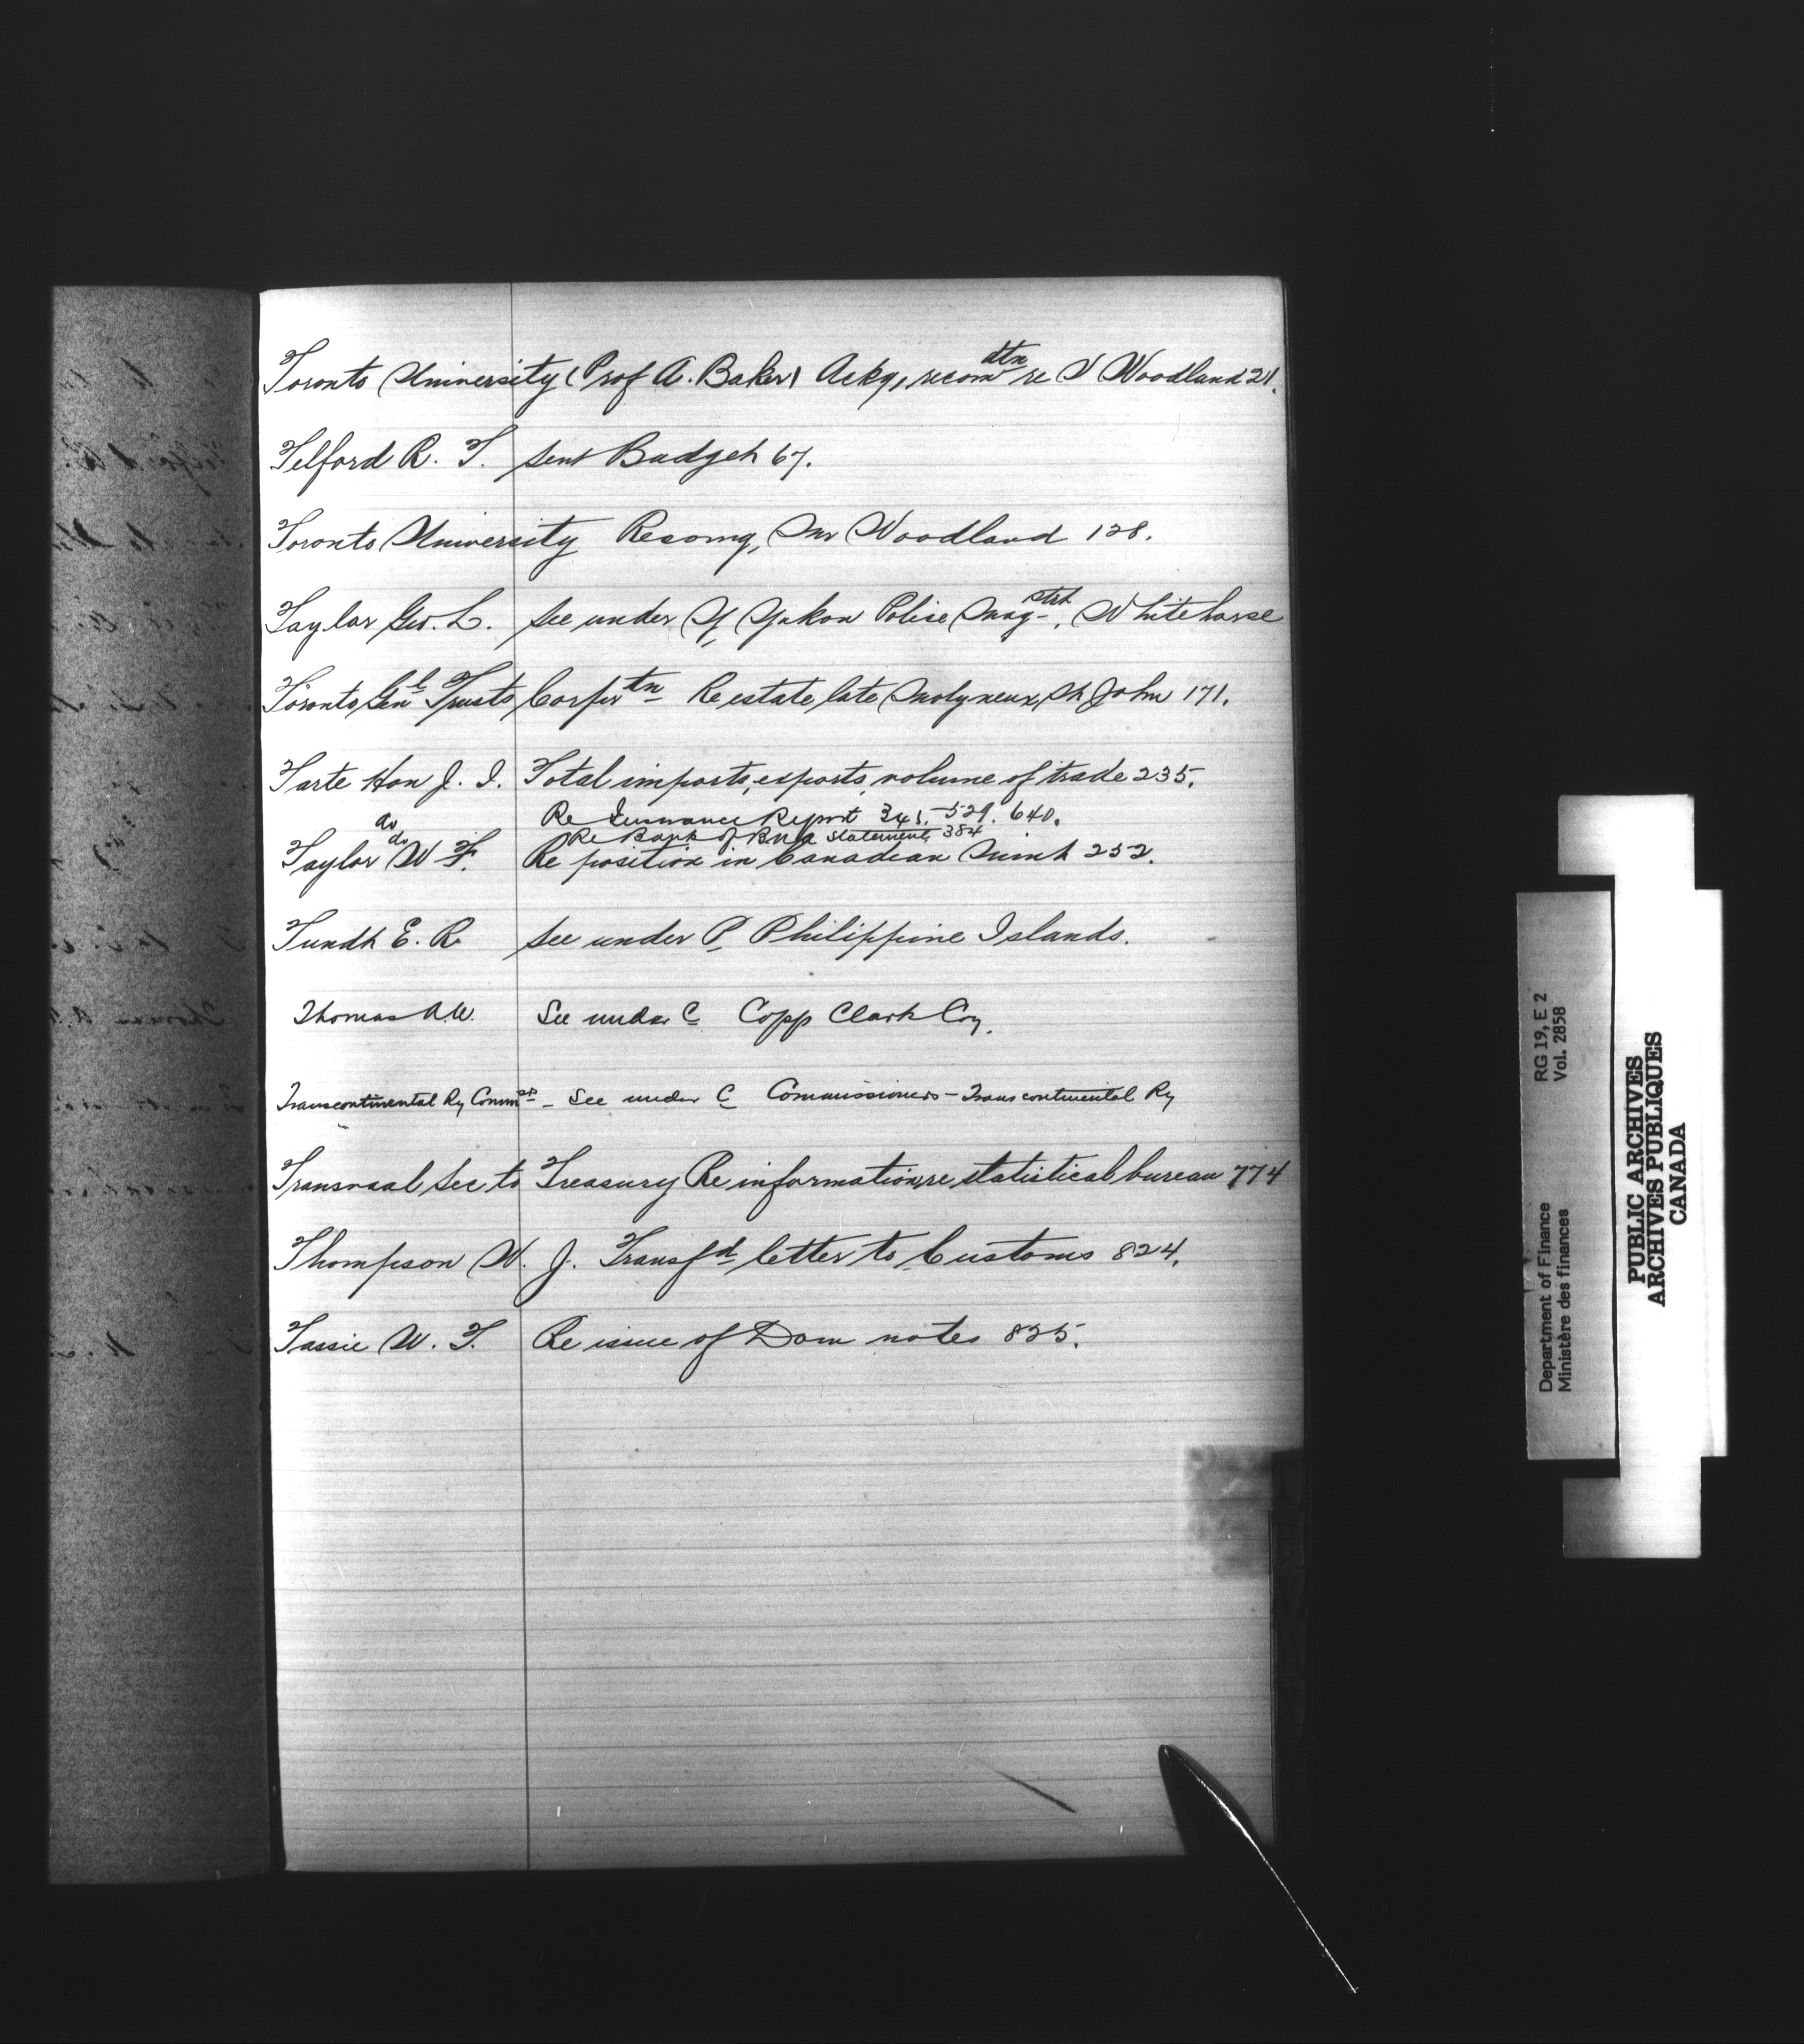 Toronto University (Prof A. Baker) Ackg, recomdtn re V Woodland 21.
Telford R. T. Sent Budget 67.
Toronto University Recomg, Mr Woodland 128.
Taylor Geo. L. See under Y Yukon Police Magstrt, Whitehorse
Toronto Genl Trusts Corprtn Re estate late Molyneux St John 171.
Tarte Hon J. I. Total imports, exports, volume of trade 235.
do Re Insurance Report 341. 529. 640.
do Re Bank of BNA statement 384
Taylor W F. Re position in Canadian Mint 252.
E. R. See under P Philippine Islands.
Thomas A.W. See under C Copp Clark Coy.
Transcontinental Ry Commrs - See under C Commissioners - Transcontinental Ry
Transvaal Sec to Treasury Re information, re statistical bureau 774
Thompson W. J. Transfd letter to Customs 824.
Tassie W. T. Re issue of Dom notes 825.
Department of Finance RG 19, E 2
Ministère des finances Vol. 2858
PUBLIC ARCHIVES
ARCHIVES PUBLIQUES
CANADA